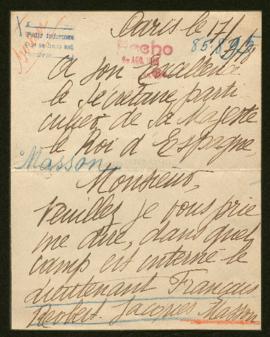 Paris le 17/
Pedir informes
Hecho
A Son Excellence
le Secrétaire parti
culier de Sa Majesté
le Roi d'Espagne
Masson
Monsieur,
Veuillez je vous prie
me dire, dans quel
camp est interné le
lieutenant François
Herbert Jacques Masson